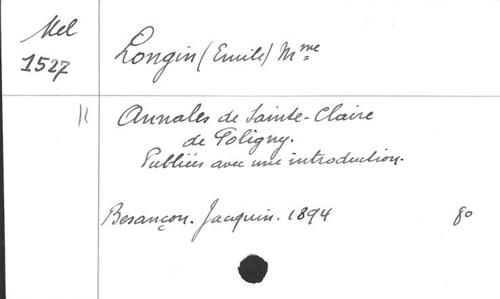 Mel
1527
Longin (Emile) Mme
11
Annales de Sainte-Claire
de Poligny.
Publiées avec une introduction.
Besançon. Jacquin. 1894
8o